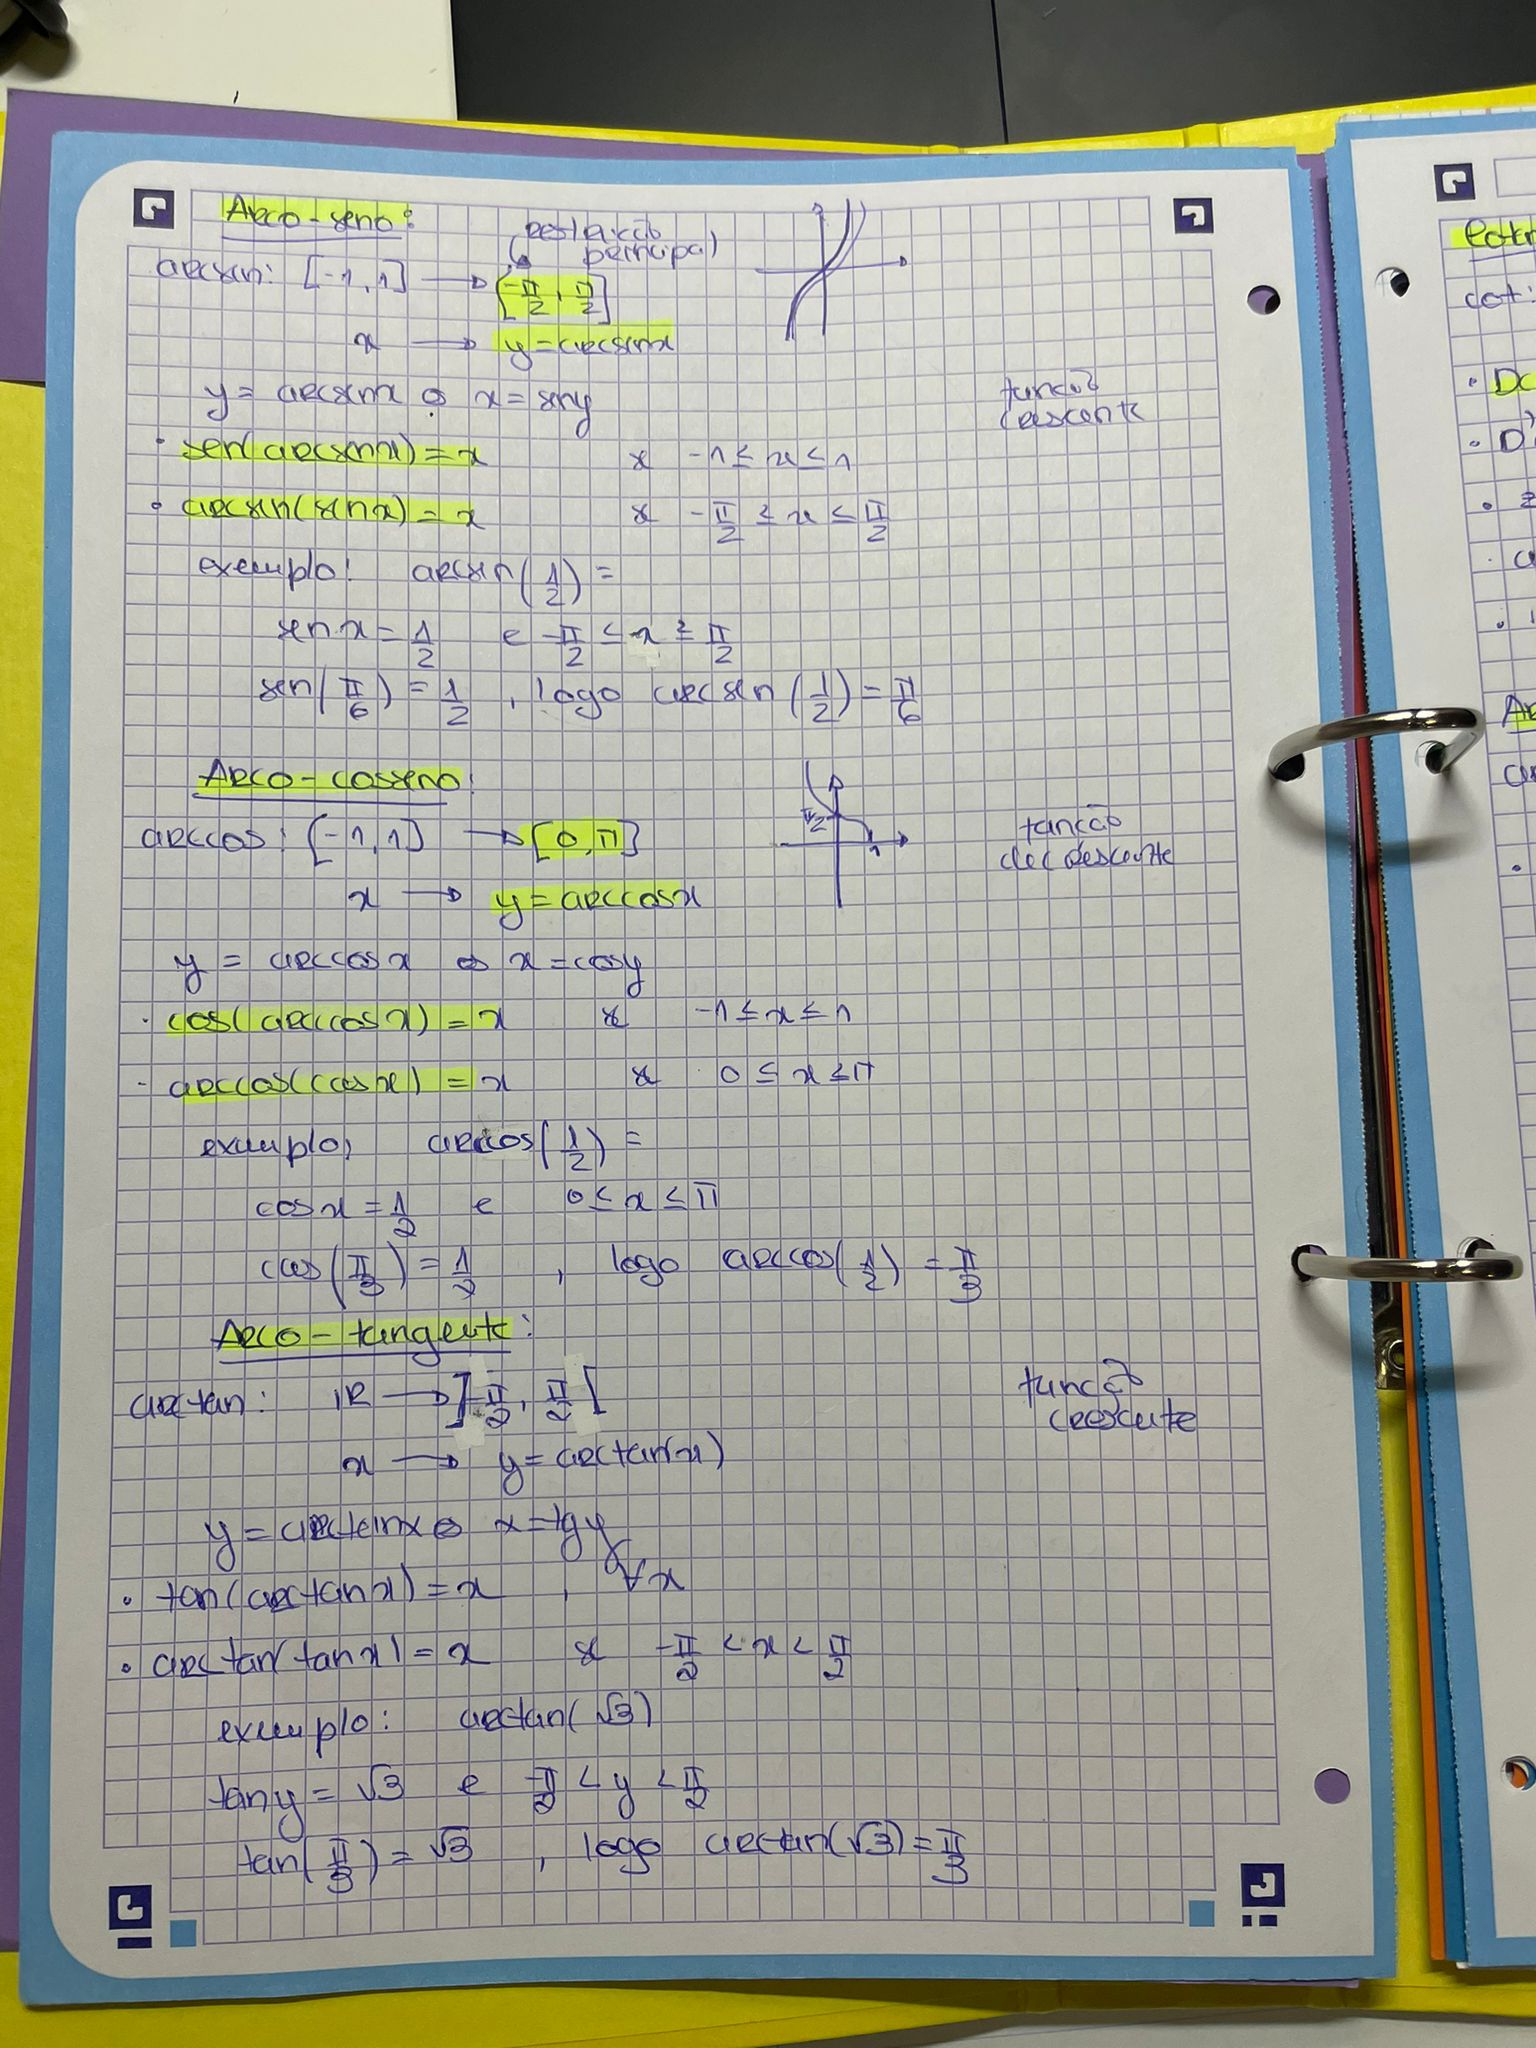 Arco-seno:
(restrição
principal)
arcsen: [-1, 1] → [-π/2, π/2]
x → y = arcsenx
y = arcsenx ⇔ x = seny
função
crescente
• sen(arcsenx) = x se -1 ≤ x ≤ 1
• arcsen(senx) = x se -π/2 ≤ x ≤ π/2
exemplo: arcsen(1/2) =
sen x = 1/2 e -π/2 ≤ x ≤ π/2
sen(π/6) = 1/2 , logo arcsen(1/2) = π/6
Arco-cosseno:
π/2
1
arccos: [-1, 1] → [0, π]
função
decrescente
x → y = arccosx
y = arccosx ⇔ x = cosy
• cos(arccosx) = x se -1 ≤ x ≤ 1
- arccos(cosx) = x se 0 ≤ x ≤ π
exemplo: arccos(1/2) =
cosx = 1/2 e 0 ≤ x ≤ π
cos(π/3) = 1/2 , logo arccos(1/2) = π/3
Arco-tangente:
arctan: IR → ]-π/2, π/2[
função
crescente
x → y = arctan(x)
y = arctanx ⇔ x = tgy
• tan(arctanx) = x , ∀x
• arctan(tanx) = x se -π/2 < x < π/2
exemplo: arctan(√3)
tany = √3 e -π/2 < y < π/2
tan(π/3) = √3 , logo arctan(√3) = π/3
cot: